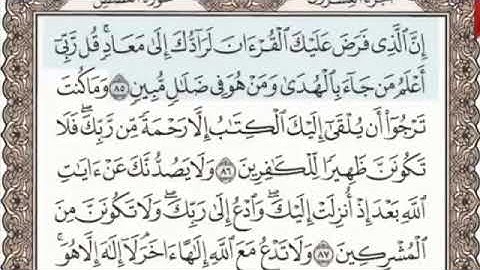 إِنَّ ٱلَّذِى فَرَضَ عَلَيْكَ ٱلْقُرْءَانَ لَرَآدُّكَ إِلَىٰ مَعَادٍ ۚ قُل رَّبِّىٓ
أَعْلَمُ مَن جَآءَ بِٱلْهُدَىٰ وَمَنْ هُوَ فِى ضَلَٰلٍ مُّبِينٍ ٨٥ وَمَا كُنتَ
تَرْجُوٓا۟ أَن يُلْقَىٰٓ إِلَيْكَ ٱلْكِتَٰبُ إِلَّا رَحْمَةً مِّن رَّبِّكَ ۖ فَلَا
تَكُونَنَّ ظَهِيرًا لِّلْكَٰفِرِينَ ٨٦ وَلَا يَصُدُّنَّكَ عَنْ ءَايَٰتِ
ٱللَّهِ بَعْدَ إِذْ أُنزِلَتْ إِلَيْكَ ۖ وَٱدْعُ إِلَىٰ رَبِّكَ ۖ وَلَا تَكُونَنَّ مِنَ
ٱلْمُشْرِكِينَ ٨٧ وَلَا تَدْعُ مَعَ ٱللَّهِ إِلَٰهًا ءَاخَرَ ۘ لَآ إِلَٰهَ إِلَّا هُوَ ۚ